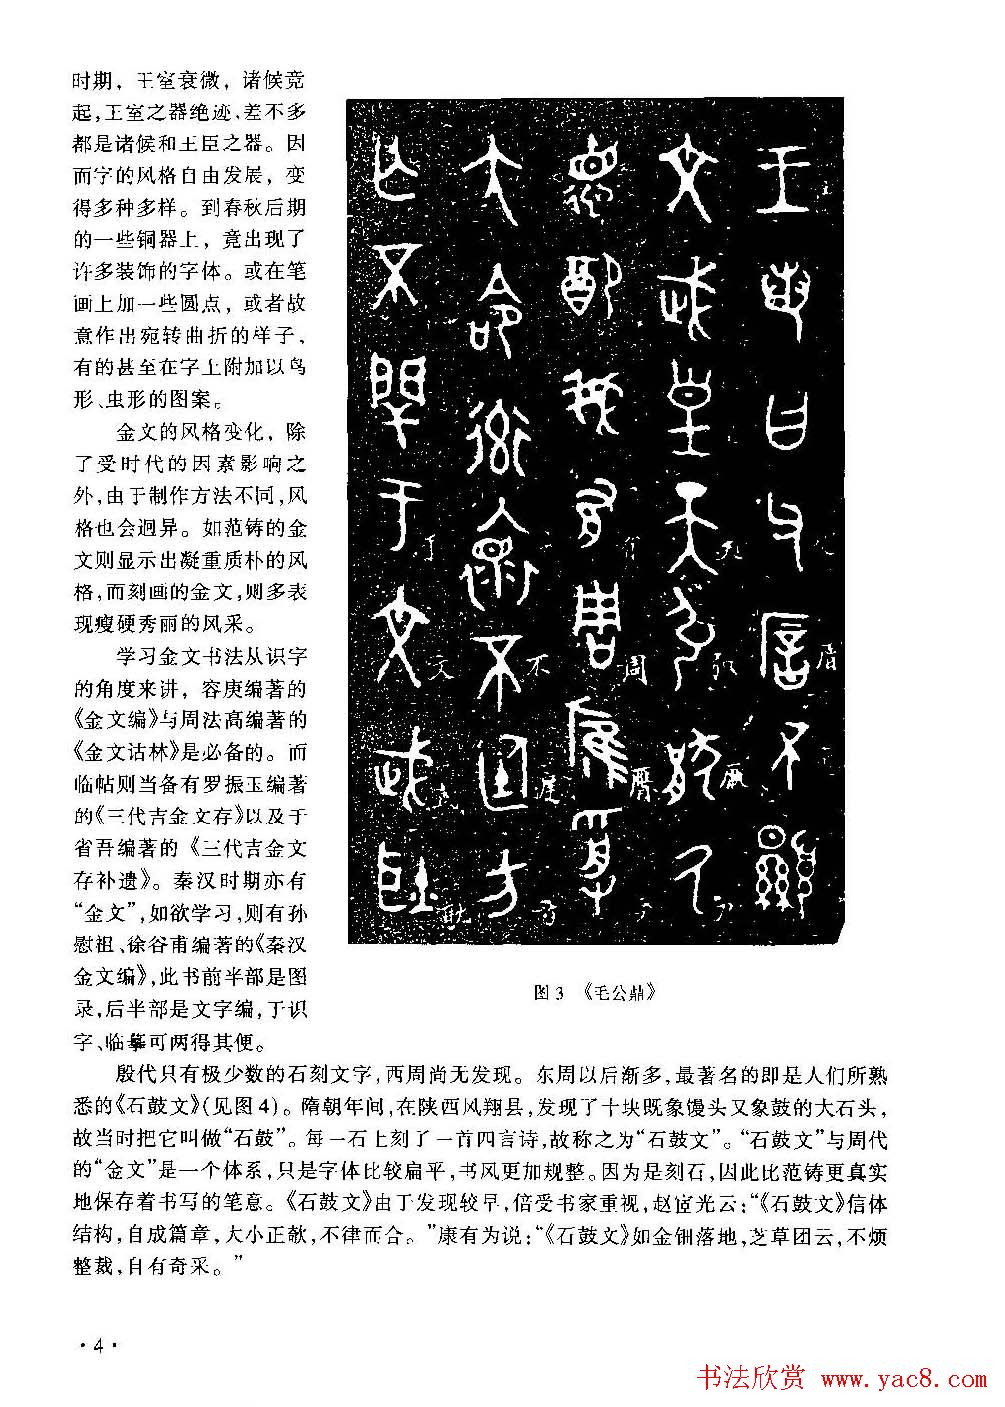 时期，王室衰微，诸候竞
起，王室之器绝迹，差不多
都是诸候和王臣之器。因
而字的风格自由发展，变
得多种多样。到春秋后期
的一些铜器上，竟出现了
许多装饰的字体。或在笔
画上加一些圆点，或者故
意作出宛转曲折的样子，
有的甚至在字上附加以鸟
形、虫形的图案。
金文的风格变化，除
了受时代的因素影响之
外，由于制作方法不同，风
格也会迥异。如范铸的金
文则显示出凝重质朴的风
格，而刻画的金文，则多表
现瘦硬秀丽的风采。
学习金文书法从识字
的角度来讲，容庚编著的
《金文编》与周法高编著的
《金文诂林》是必备的。而
临帖则当备有罗振玉编著
的《三代吉金文存》以及于
省吾编著的《三代吉金文
存补遗》。秦汉时期亦有
“金文”，如欲学习，则有孙
慰祖、徐谷甫编著的《秦汉
金文编》，此书前半部是图
录，后半部是文字编，于识
字、临摹可两得其便。
王曰父不
文武皇天
有周
大命不方
不閈于文武耿
图3 《毛公鼎》
殷代只有极少数的石刻文字，西周尚无发现。东周以后渐多，最著名的即是人们所熟
悉的《石鼓文》（见图4）。隋朝年间，在陕西凤翔县，发现了十块既象馒头又象鼓的大石头，
故当时把它叫做“石鼓”。每一石上刻了一首四言诗，故称之为“石鼓文”。“石鼓文”与周代
的“金文”是一个体系，只是字体比较扁平，书风更加规整。因为是刻石，因此比范铸更真实
地保存着书写的笔意。《石鼓文》由于发现较早，倍受书家重视，赵宧光云：“《石鼓文》信体
结构，自成篇章，大小正欹，不律而合。”康有为说：“《石鼓文》如金钿落地，芝草团云，不烦
整裁，自有奇采。”
·4·
书法欣赏 www.yac8.com